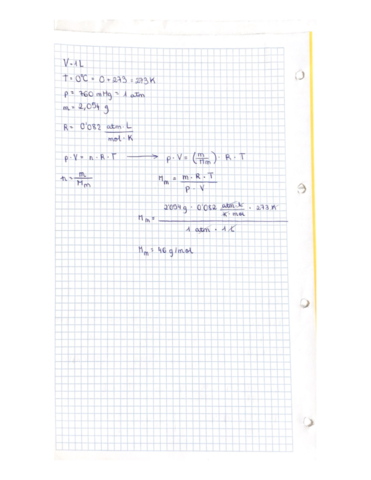 V=1L
T=0ºC = 0+273=273K
p= 760 mmHg = 1 atm
m= 2,054 g
R= 0'082 atm·L / mol·K
p·V= n·R·T → p·V= (m/Mm)·R·T
n= m/Mm Mm = m·R·T / p·V
Mm= 2'054g · 0'082 atm·L/K·mol · 273K / 1 atm · 1L
Mm= 46 g/mol